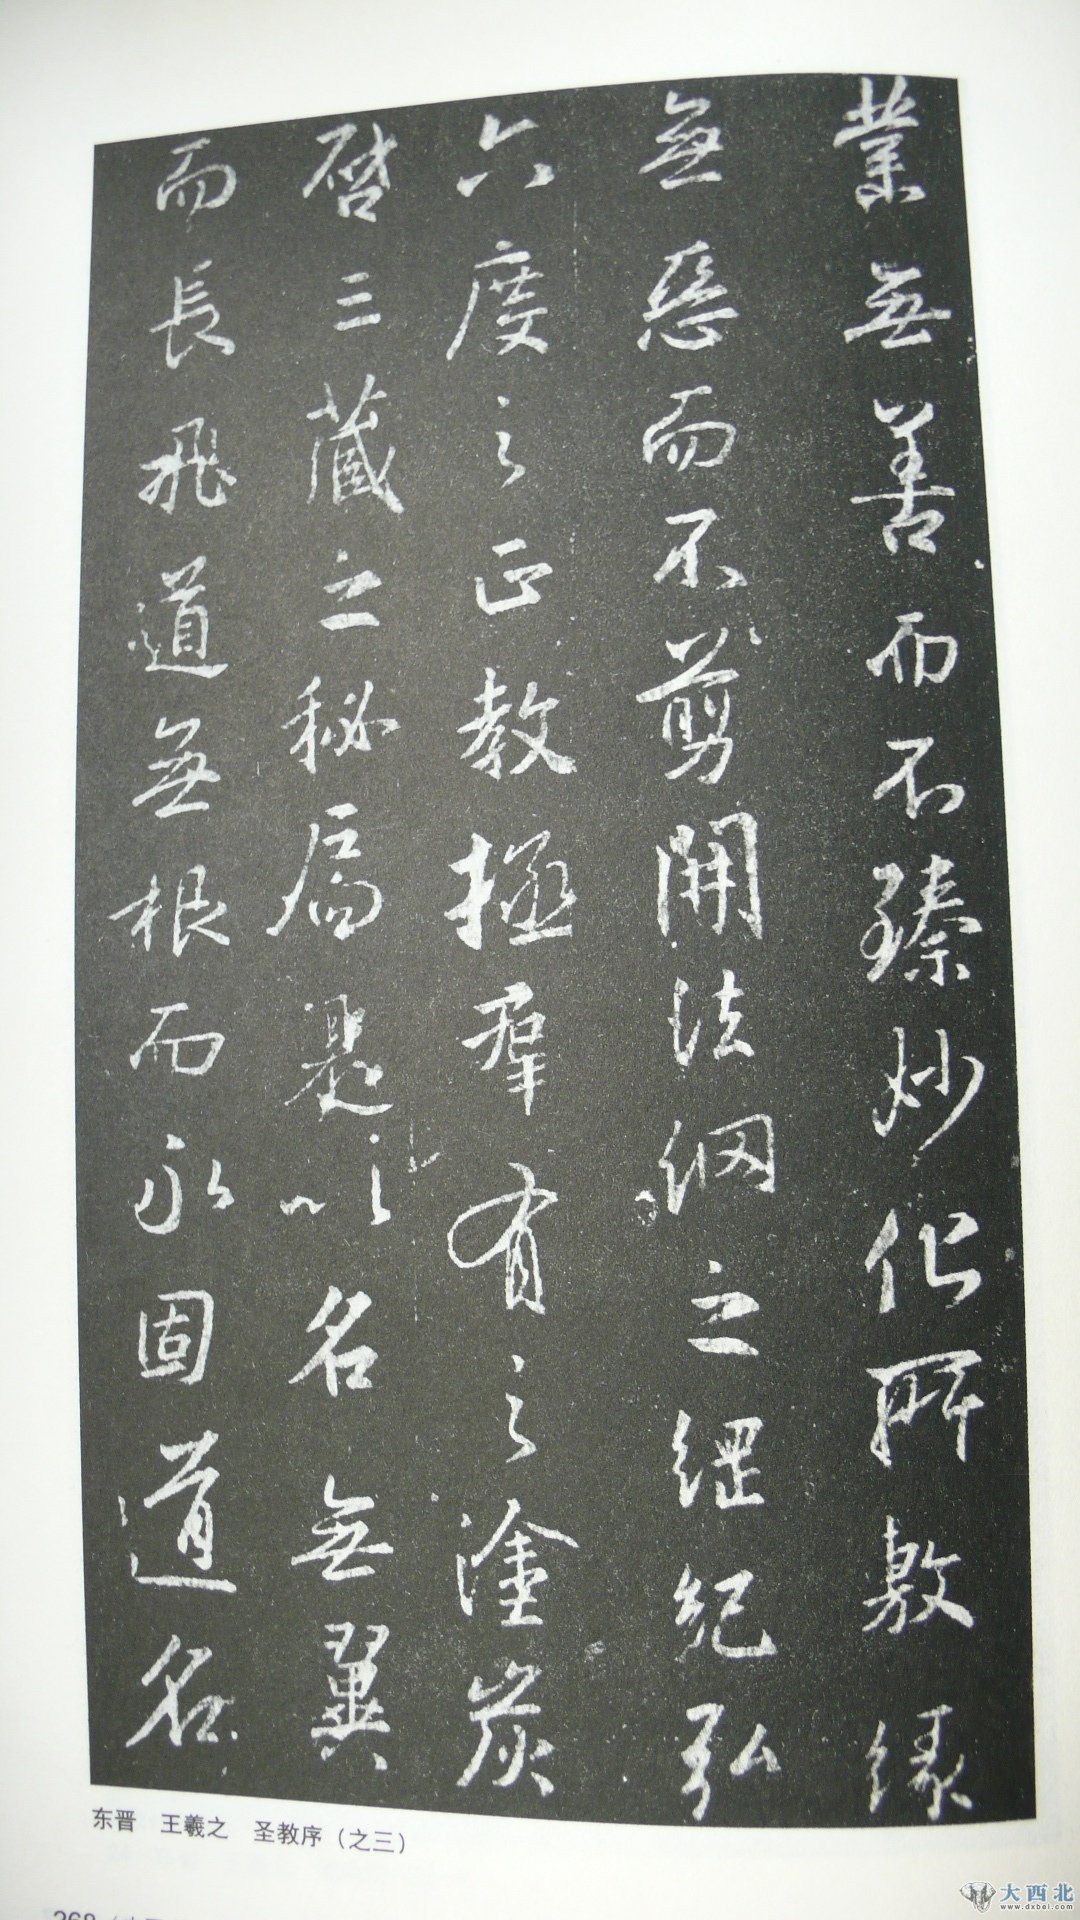 業無善而不臻妙化所敷緣
無惡而不剪開法網之綱紀弘
六度之正教拯群有之塗炭
啓三藏之秘扃是以名無翼
而長飛道無根而永固道名
东晋 王羲之 圣教序（之三）
268
大西北
www.dxbei.com